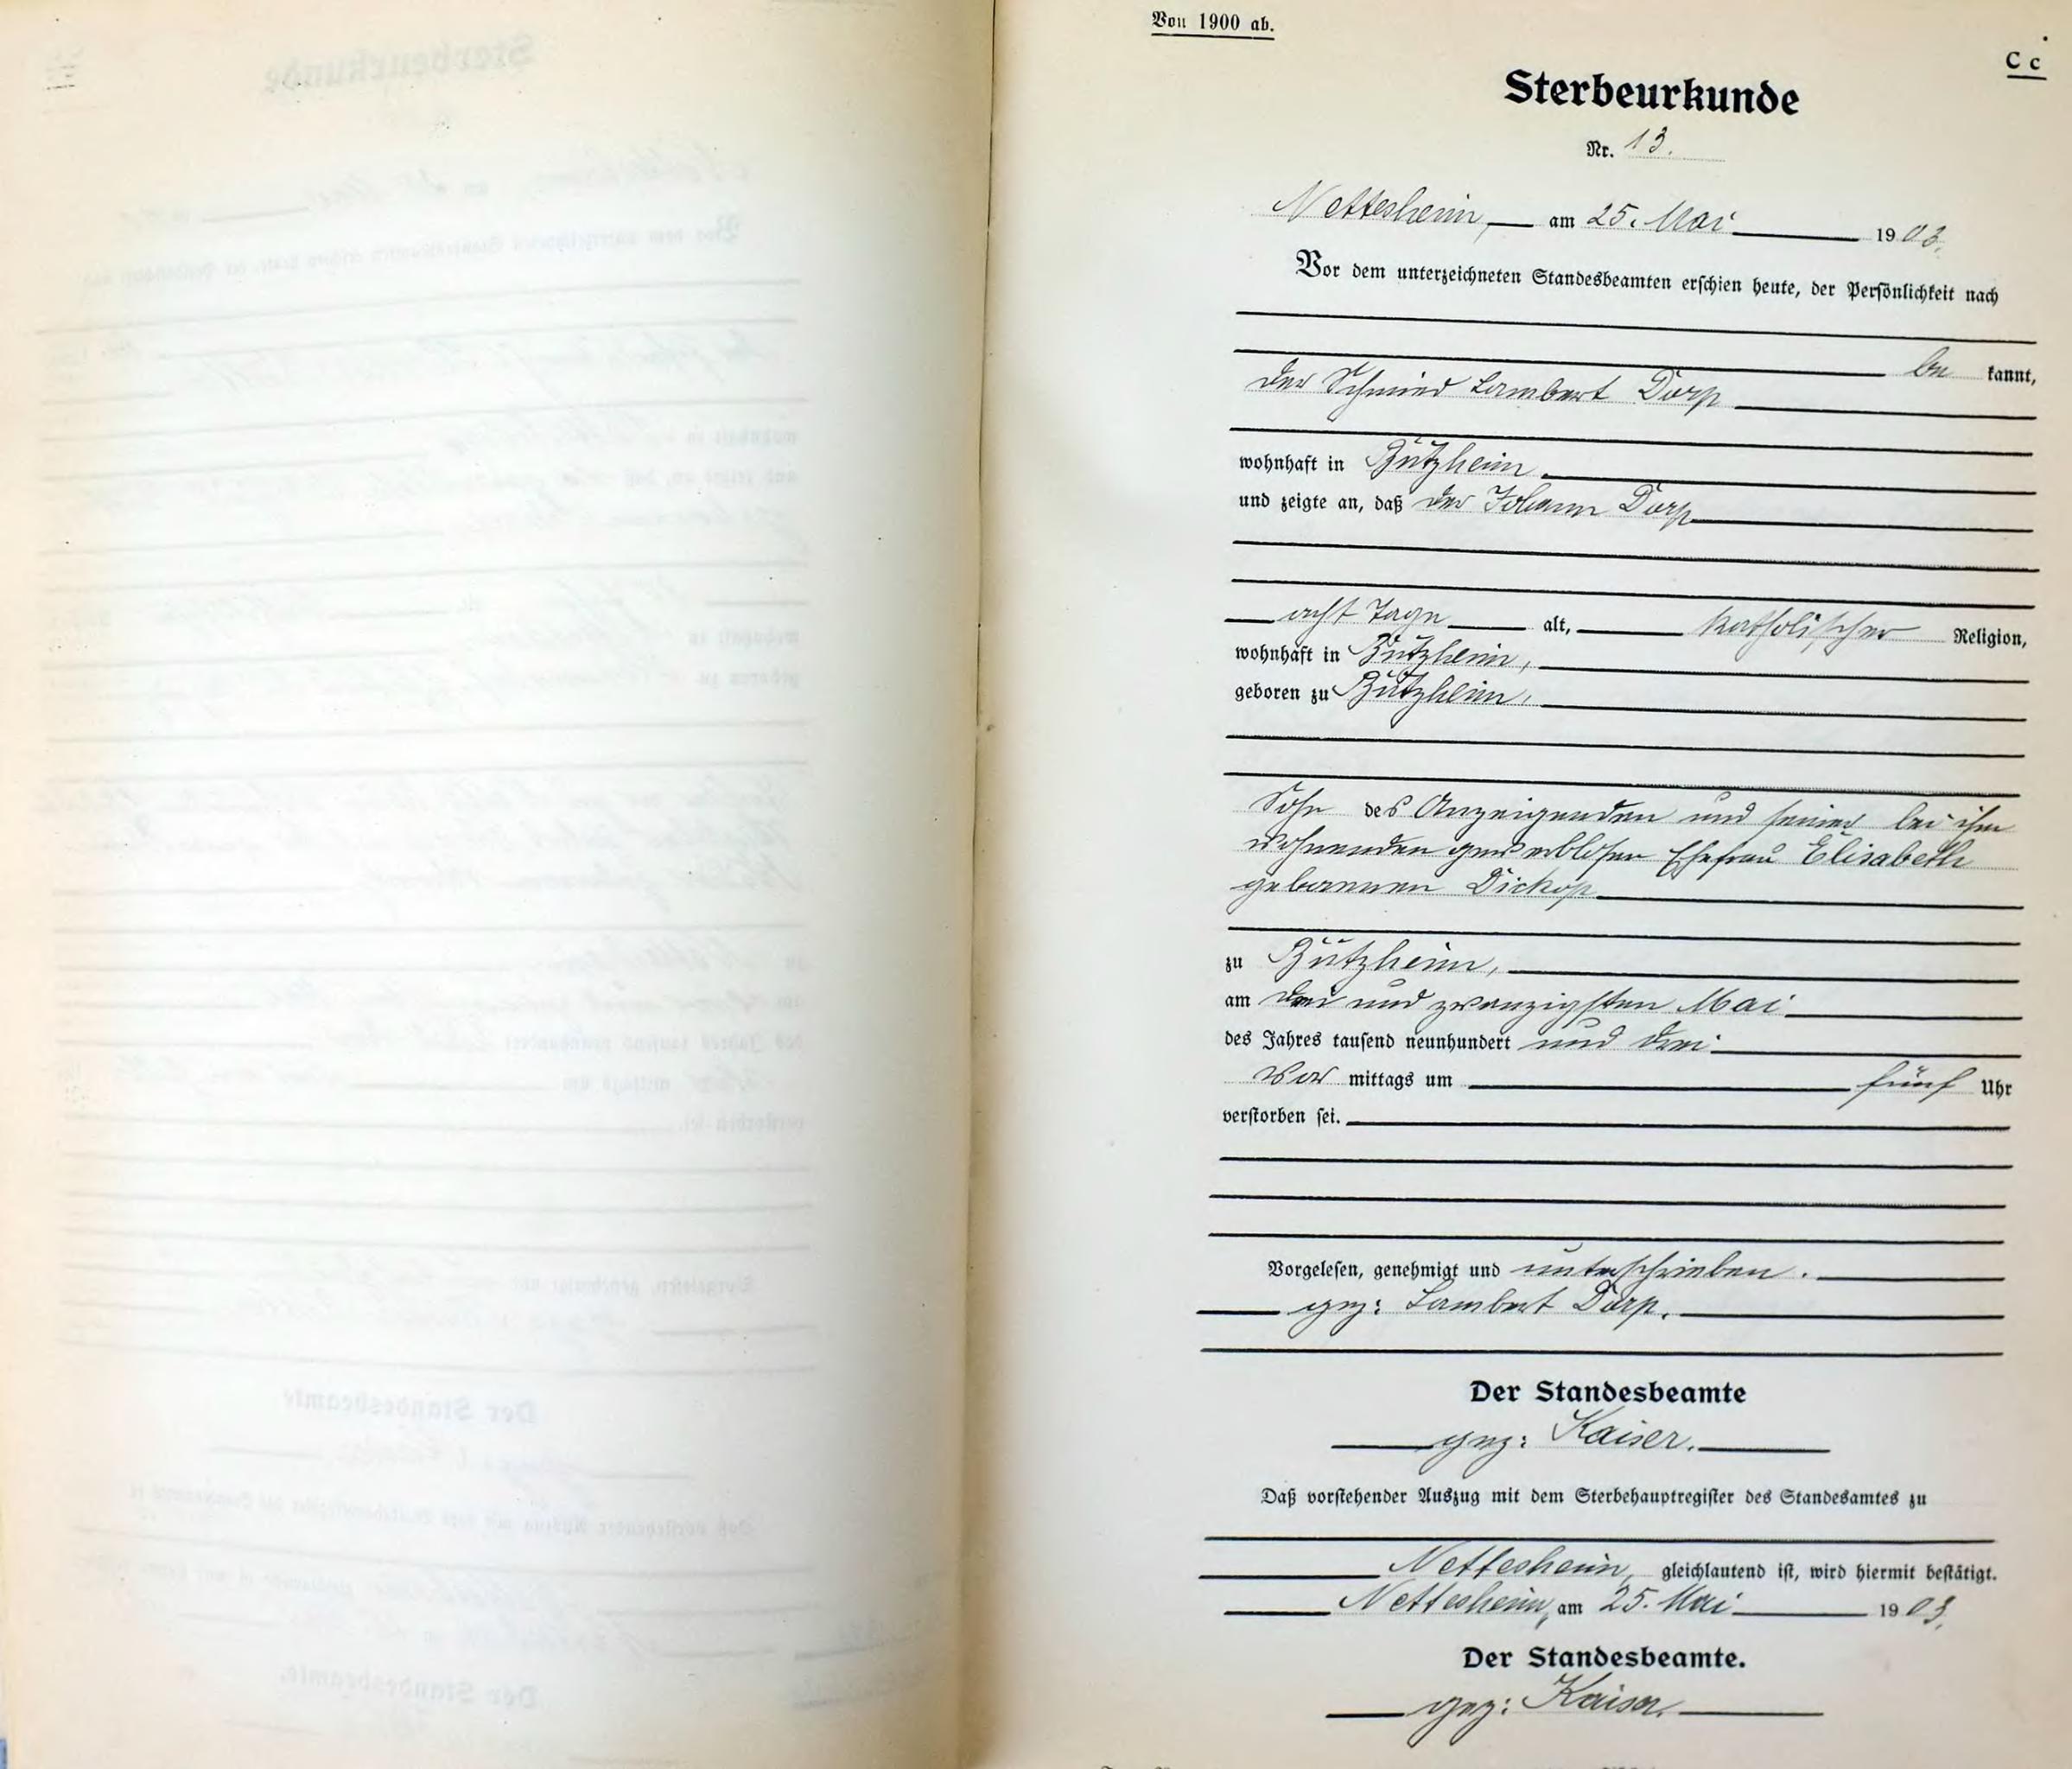 Von 1900 ab.
C c
Sterbeurkunde
Nr. 13.
Nettesheim, am 25. Mai 1903.
Vor dem unterzeichneten Standesbeamten erschien heute, der Persönlichkeit nach
be kannt,
der Schmied Lambert Dorp
wohnhaft in Bützheim
und zeigte an, daß der Johann Dorp
acht Tage alt, katholischer Religion,
wohnhaft in Bützheim,
geboren zu Bützheim,
Sohn des Anzeigenden und seiner bei ihm
wohnenden gewerblosen Ehefrau Elisabeth
geborenen Dickop
zu Bützheim,
am drei und zwanzigsten Mai
des Jahres tausend neunhundert und drei
Vor mittags um fünf Uhr
verstorben sei.
Vorgelesen, genehmigt und unterschrieben.
gez: Lambert Dorp.
Der Standesbeamte
gez: Kaiser.
Daß vorstehender Auszug mit dem Sterbehauptregister des Standesamtes zu
Nettesheim, gleichlautend ist, wird hiermit bestätigt.
Nettesheim, am 25. Mai 1903.
Der Standesbeamte.
gez: Kaiser.